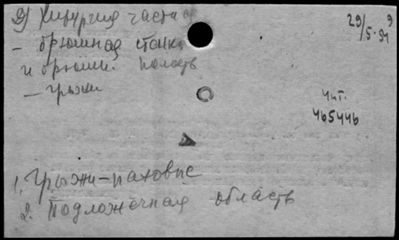 д) Хирургия частная
29/5·91
9
- брюшная стенка
и брюшн. полость
- грыжи
чит.
465446
1. Грыжи-паховые
2. Подложечная область